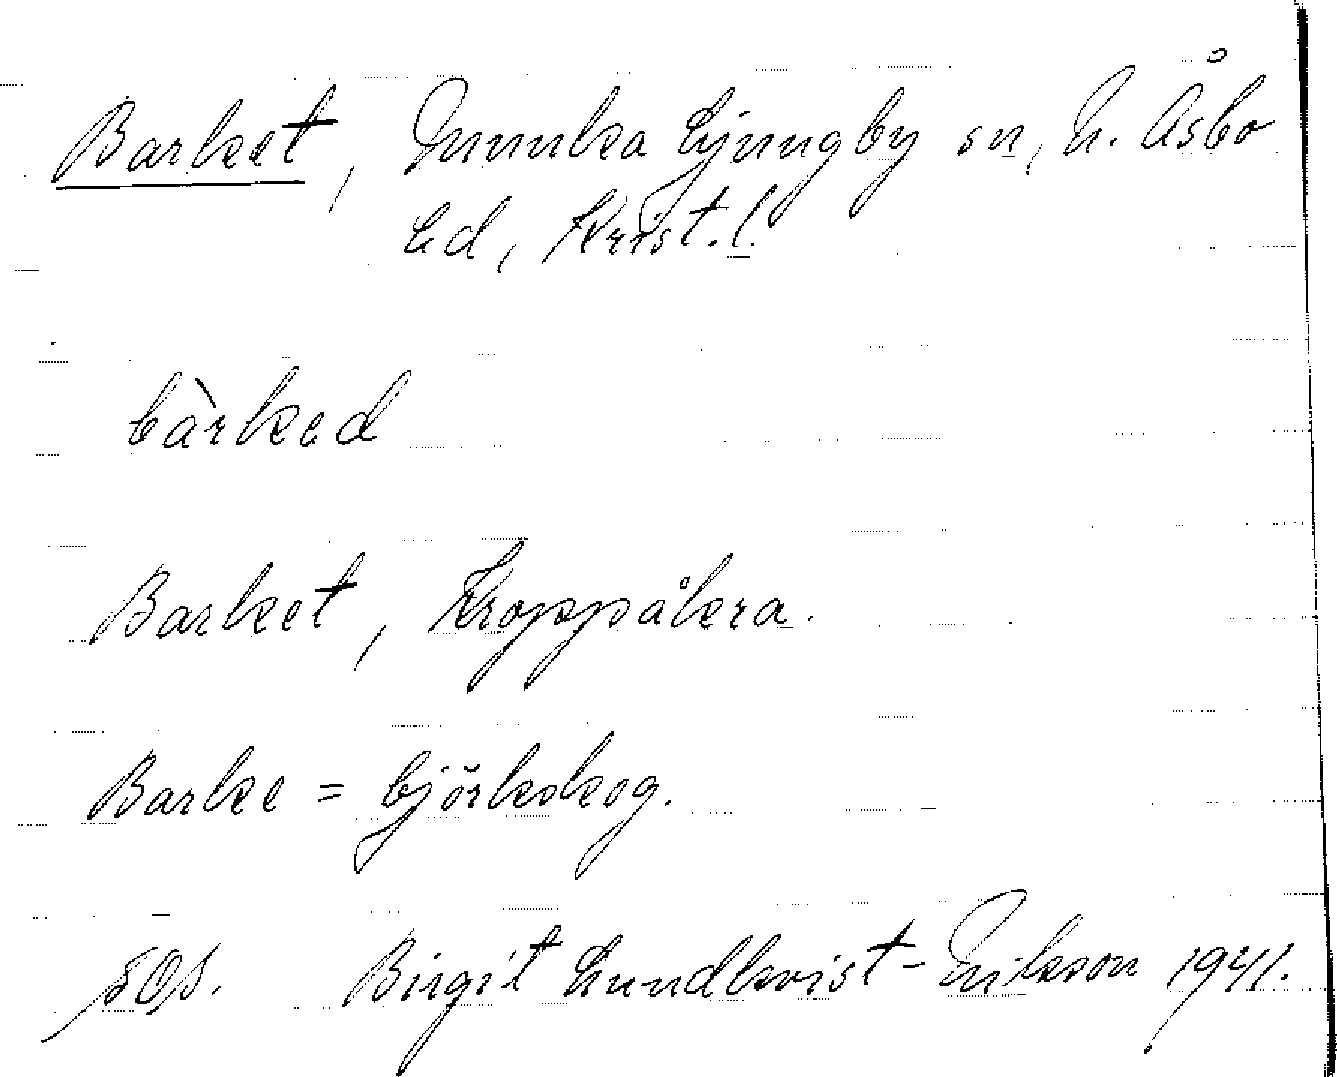 Barket, Munka Ljungby sn, N. Åsbo
hd, Krist. l.
bàrked
Barket, Kroppåkra.
Barke = björkskog.
sos. Birgit Lundkvist-Erikson 1941.